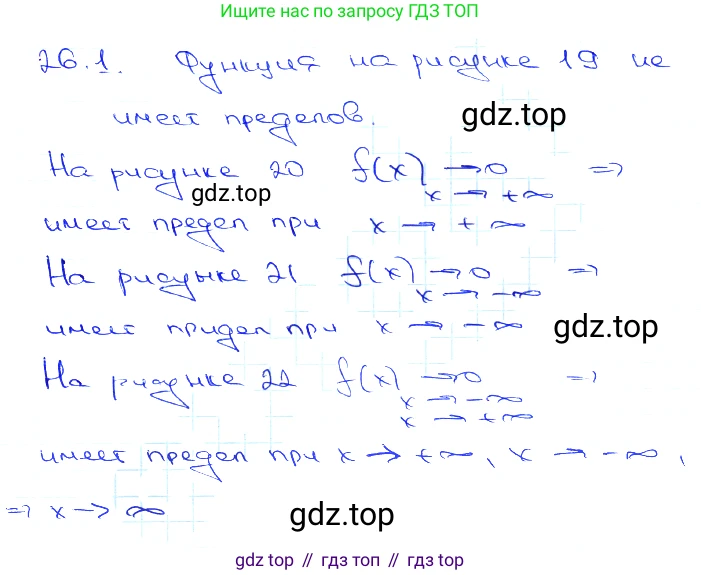 Ищите нас по запросу ГДЗ ТОП
26.1. Функция на рисунке 19 не
имеет пределов.
gdz.top
На рисунке 20 f(x) → 0 =>
x → +∞
gdz.top
имеет предел при x → +∞
На рисунке 21 f(x) → 0 =>
x → -∞
имеет придел при x → -∞
gdz.top
На рисунке 22 f(x) → 0 =>
x → -∞
x → +∞
имеет предел при x → +∞, x → -∞,
=> x → ∞
gdz.top
gdz top // гдз топ // gdz top